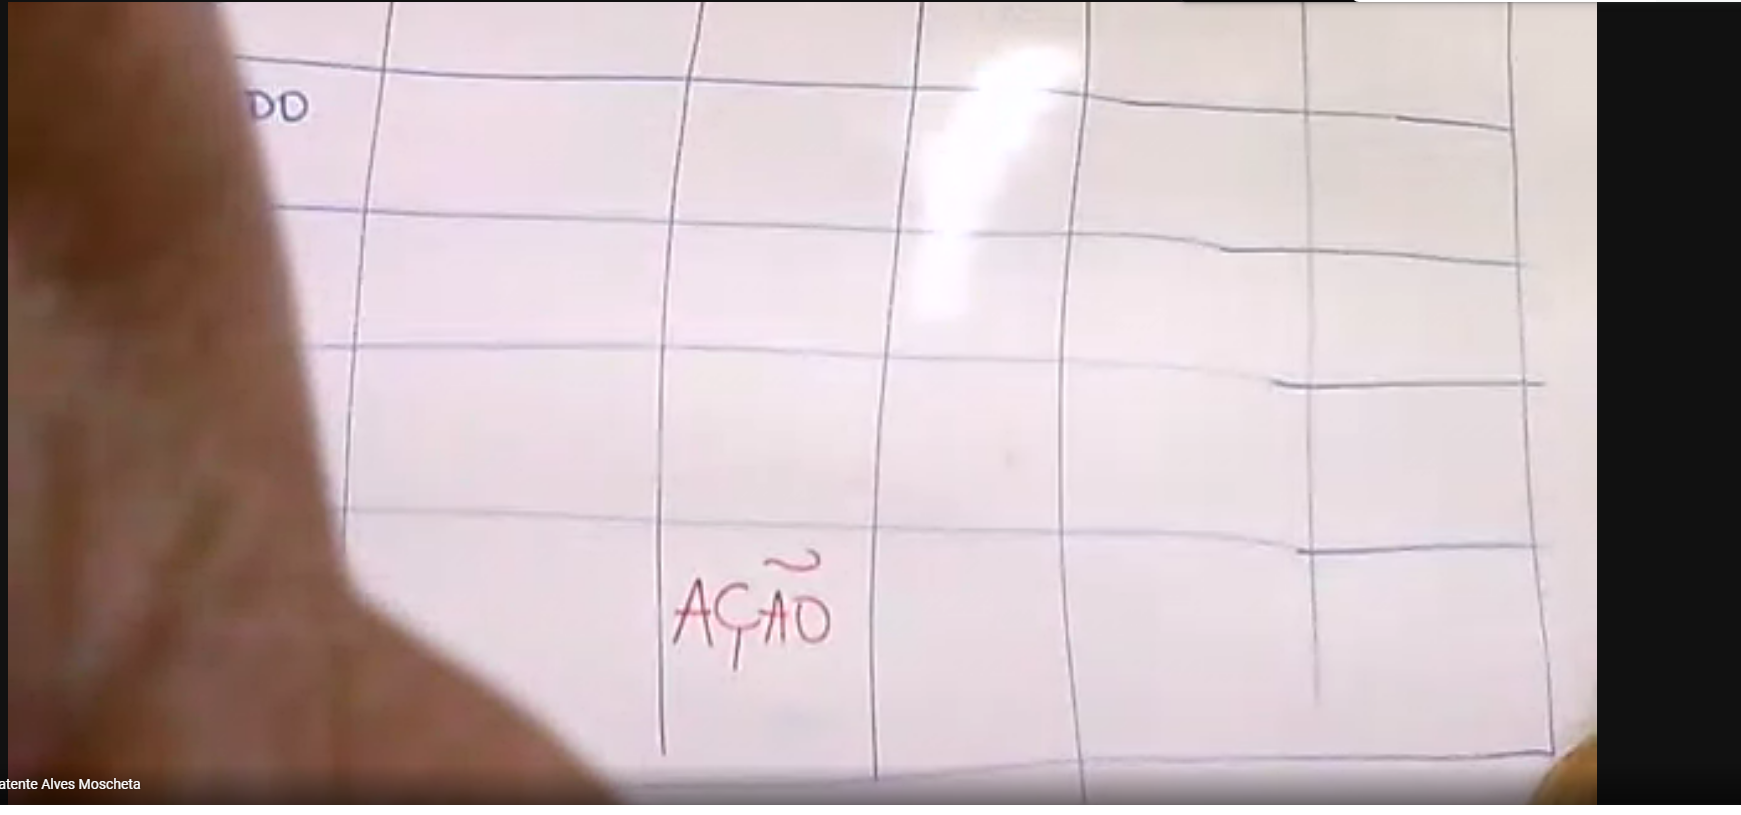 DO
AÇÃO
atente Alves Moscheta